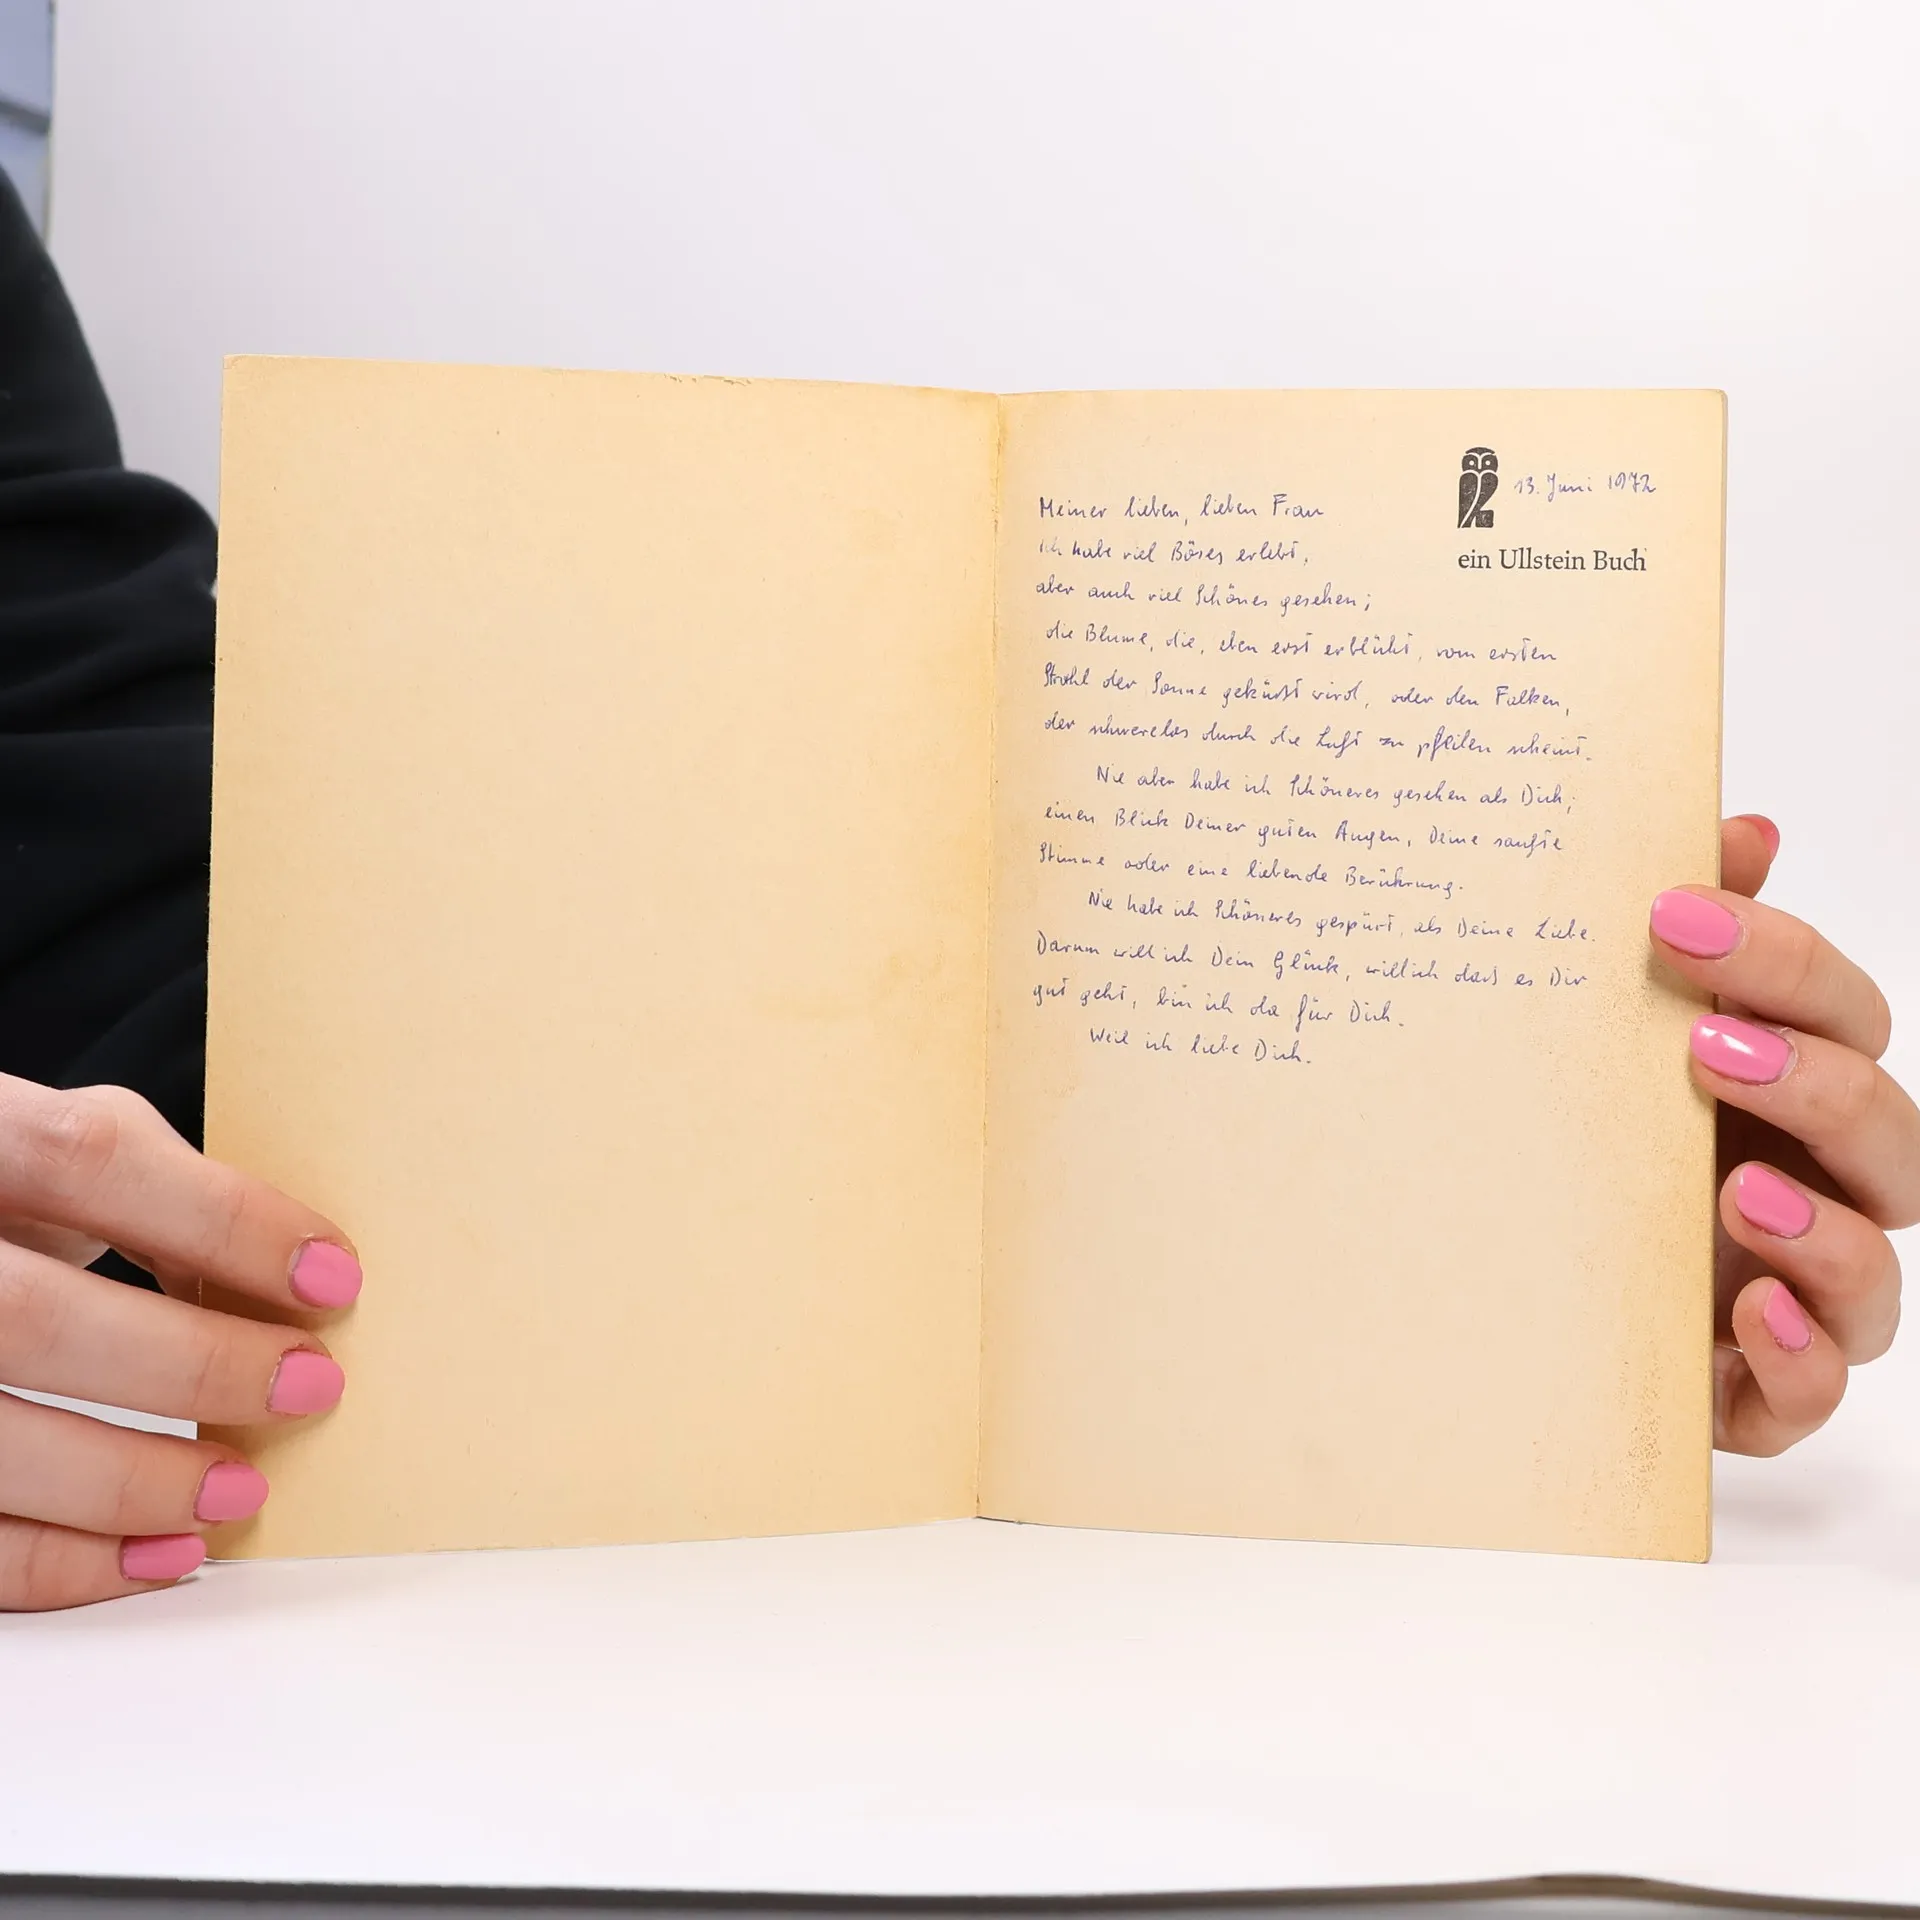 13. Juni 1972
ein Ullstein Buch
Meiner lieben, lieben Frau
ich habe viel Böses erlebt,
aber auch viel Schönes gesehen;
die Blume, die, eben erst erblüht, vom ersten
Strahl der Sonne geküßt wird, oder den Falken,
der schwerelos durch die Luft zu pfeilen scheint.
Nie aber habe ich Schöneres gesehen als Dich;
einen Blick Deiner guten Augen, Deine sanfte
Stimme oder eine liebende Berührung.
Nie habe ich Schöneres gespürt, als Deine Liebe.
Darum will ich Dein Glück, will ich daß es Dir
gut geht, bin ich da für Dich.
Weil ich liebe Dich.